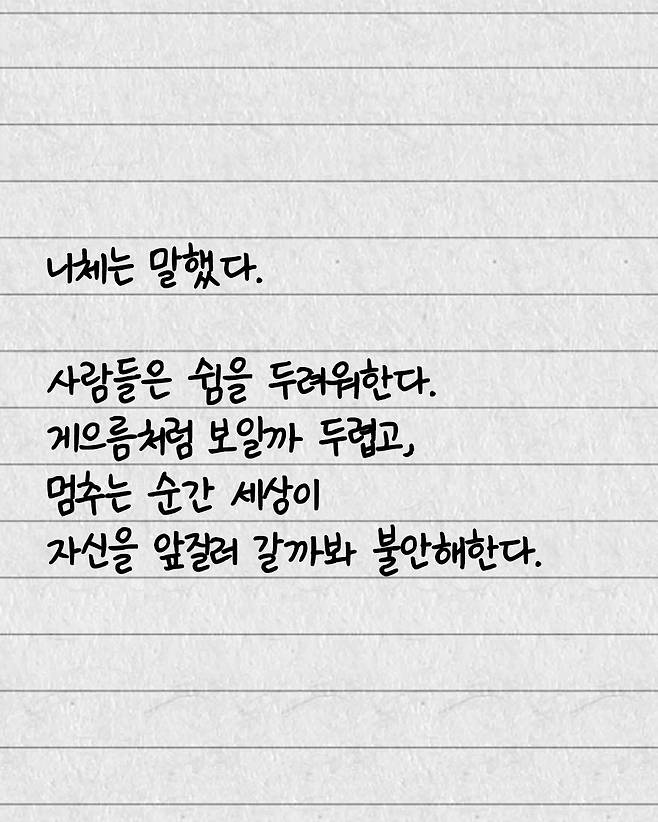 니체는 말했다.
사람들은 쉼을 두려워한다.
게으름처럼 보일까 두렵고,
멈추는 순간 세상이
자신을 앞질러 갈까봐 불안해한다.